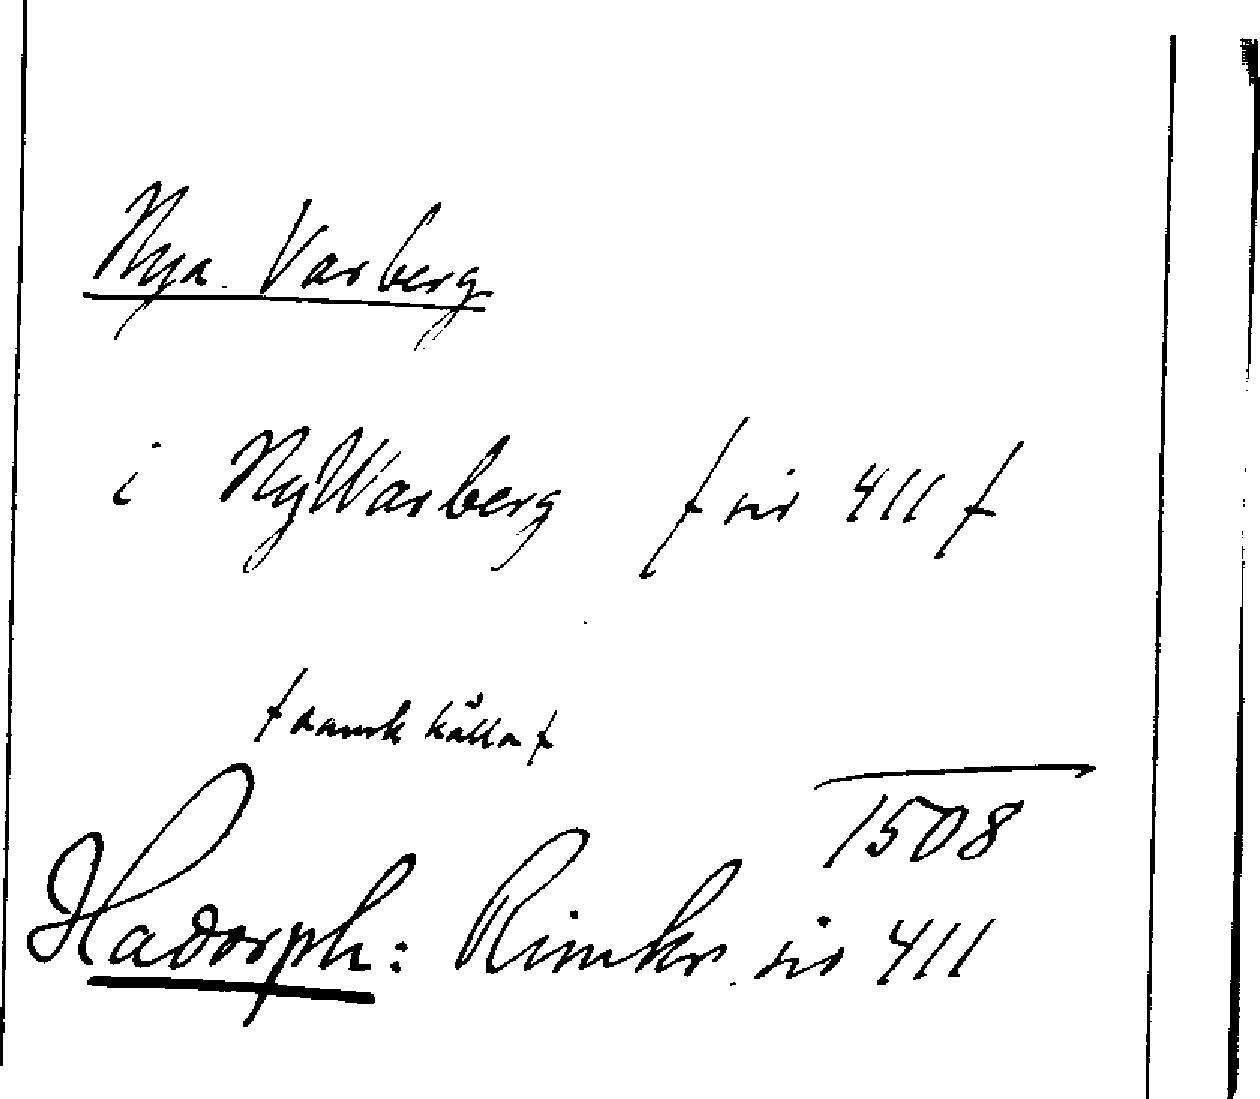 Nya Varberg
i NyWarberg / sid 411 /
/ dansk källa /
1508
Hadorph: Rimkr. sid 411